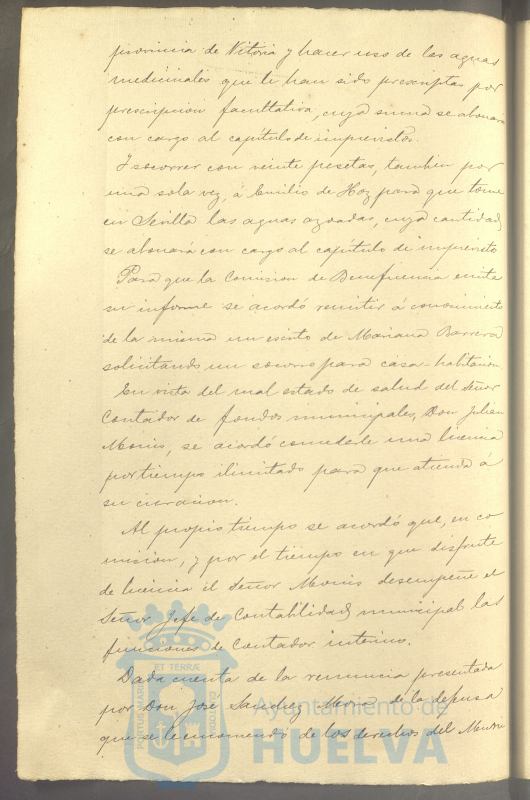 provincia de Vitoria y hacer uso de las aguas
medicinales que le han sido prescriptas por
prescripcion facultativa, cuya suma se abonará
con cargo al capítulo de imprevistos.
Y socorrer con veinte pesetas, tambien por
una sola vez, á Emilio de Hoz para que tome
en Sevilla las aguas azoadas, cuya cantidad
se abonará con cargo al capítulo de imprevisto
Para que la Comision de Beneficencia emita
su informe se acordó remitir á conocimiento
de la misma un escrito de Mariana Barrera
solicitando un socorro para casa-habitacion
En vista del mal estado de salud del Señor
Contador de fondos municipales, Don Julian
se acordó concederle una licencia
por tiempo ilimitado para que atienda á
su curacion.
Al propio tiempo se acordó que, en co
mision, y por el tiempo en que disfrute
de licencia el Señor desempeñe el
Señor Jefe de Contabilidad municipal las
funciones de Contador interino.
Dada cuenta de la renuncia presentada
por Don José Sanchez Mora de la defensa
que se le encomendó de los derechos del
ET TERRÆ
PORTUS MARIS
CUSTODIA
Ayuntamiento de
HUELVA